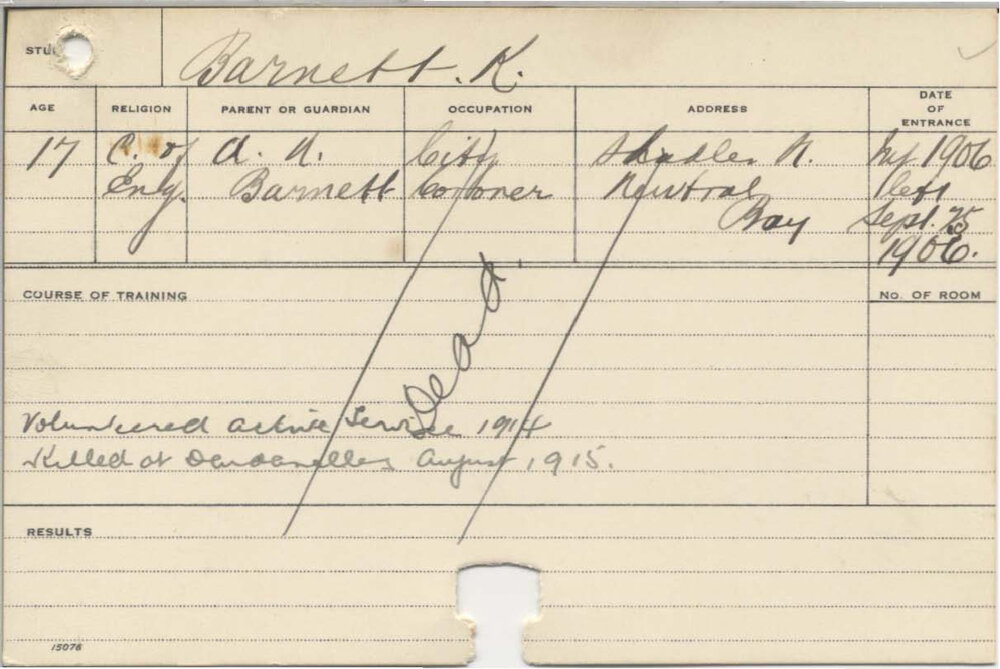 STU
Barnett. K.
AGE RELIGION PARENT OR GUARDIAN OCCUPATION ADDRESS DATE OF ENTRANCE
17 C. of A. A. City N. 1906
Eng. Barnett Coroner Neutral left
Bay Sept. 25
1906.
COURSE OF TRAINING No. OF ROOM
Dead.
Volunteered active Service 1914
Killed at Dardanelles August 1915.
RESULTS
15076